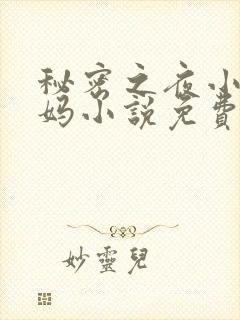 秘密之夜小
妈小说免费
妙靈兒